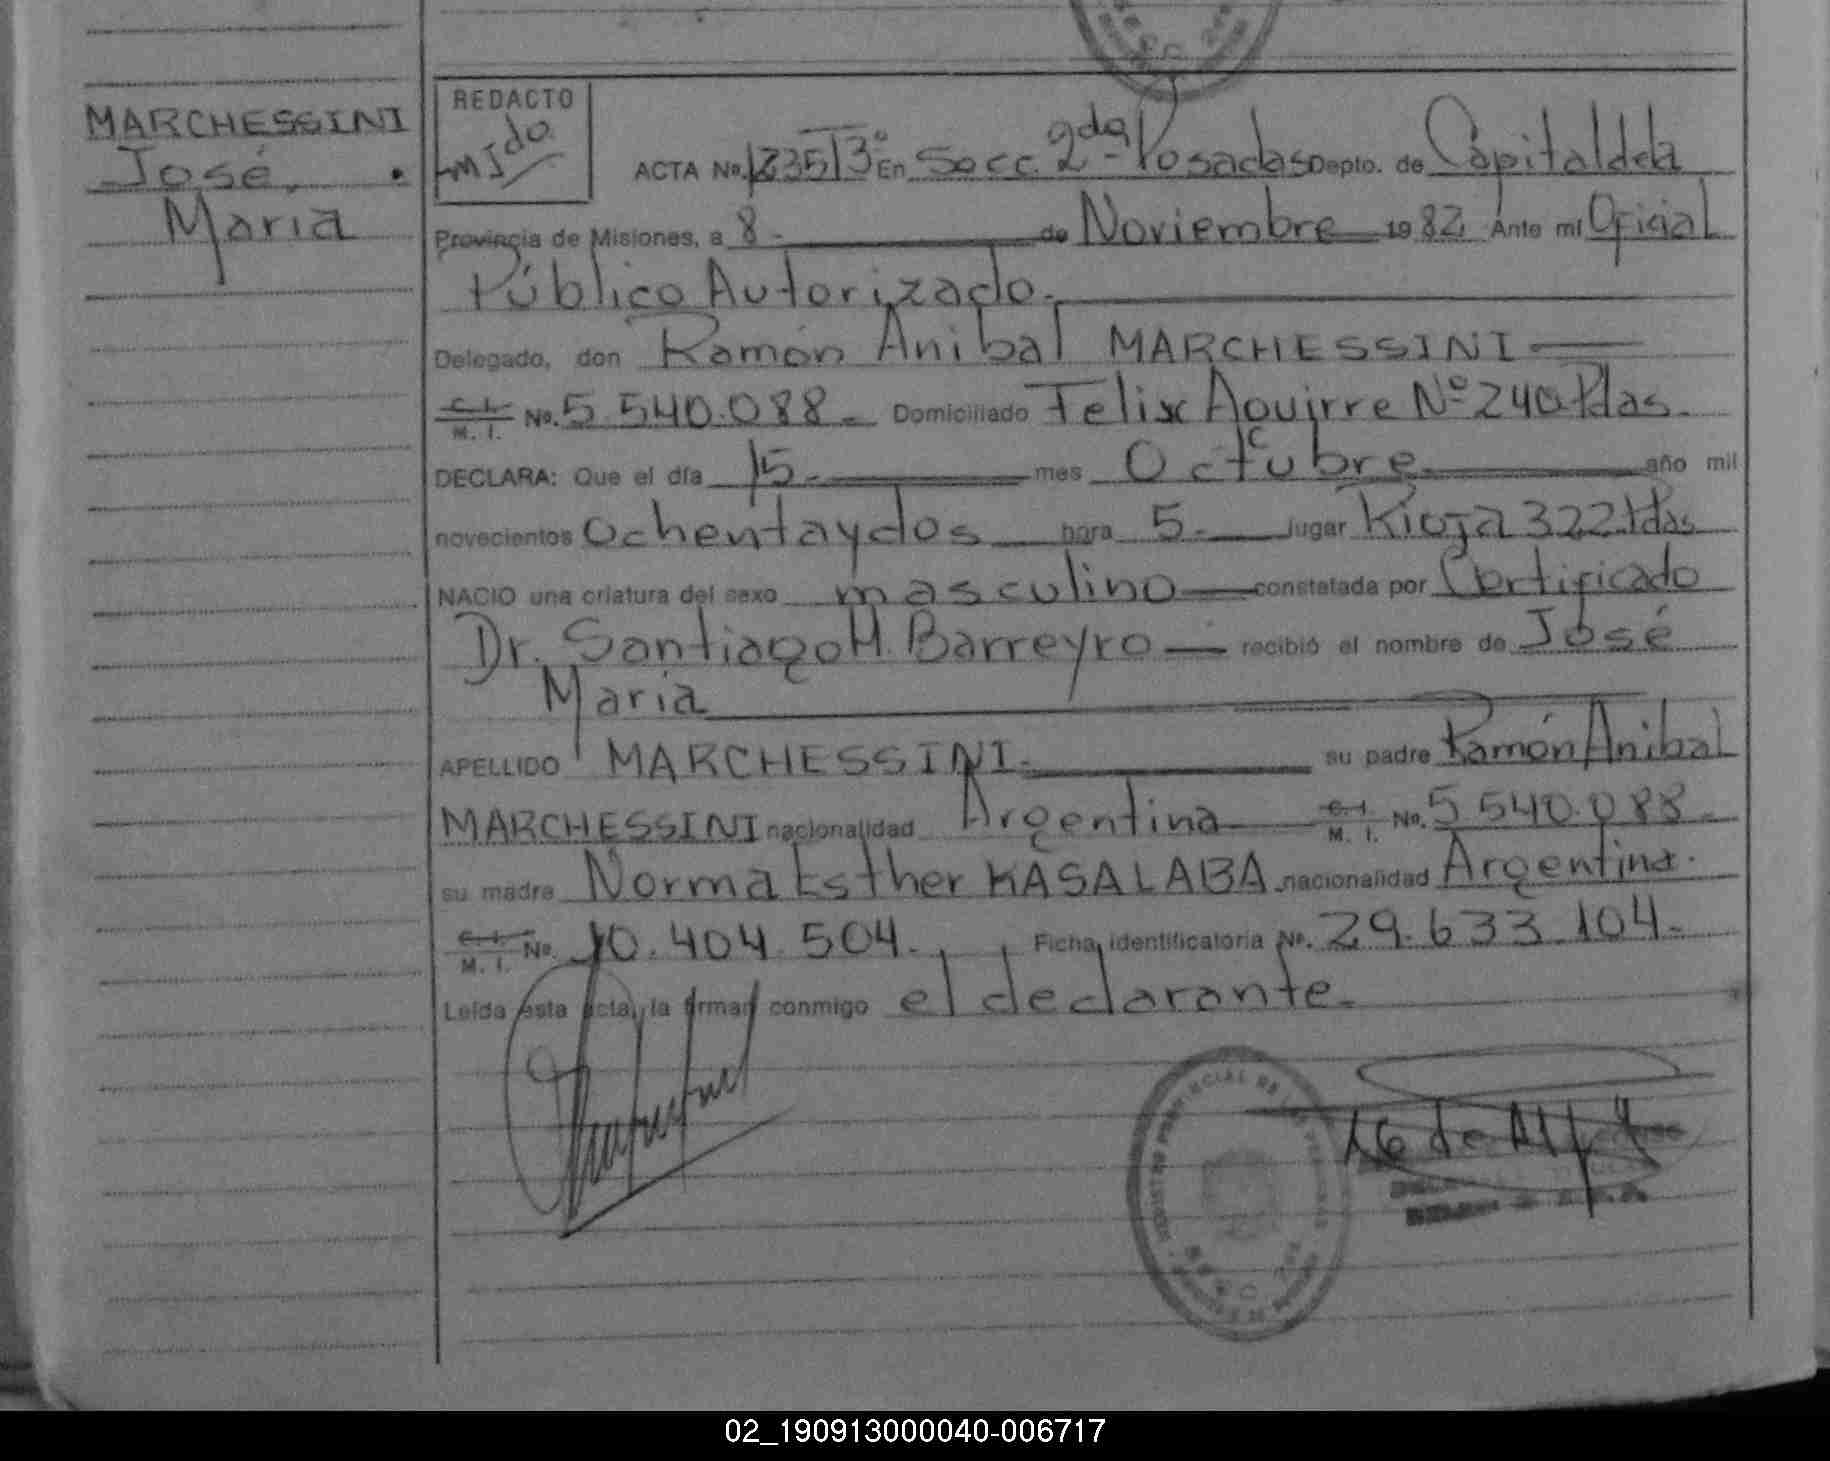 MARCHESSINI
José
María
REDACTO
ACTA No. En Secc. 2da - Posadas Depto. de Capital de la
Provincia de Misiones, a 8 - de Noviembre 1982 Ante mi Oficial
Público Autorizado.
Delegado, don Ramón Anibal MARCHESSINI
C. I. M. I. No. 5.540.088 - Domiciliado Felix Aguirre Nº 240 Pdas.
DECLARA: Que el día 15 - mes Octubre año mil
novecientos ochenta y dos hora 5 - lugar Rioja 322 Pdas
NACIO una criatura del sexo masculino constatada por Certificado
Dr. Santiago H. Barreyro - recibió el nombre de José
María
APELLIDO MARCHESSINI - su padre Ramón Anibal
MARCHESSINI nacionalidad Argentina C. I. M. I. No. 5.540.088 -
su madre Norma Esther KASALABA nacionalidad Argentina.
C. I. M. I. No. 10.404.504. Ficha identificatoria No. 29.633.104 -
Leída ésta acta, la firman conmigo el declarante -
02_190913000040-006717